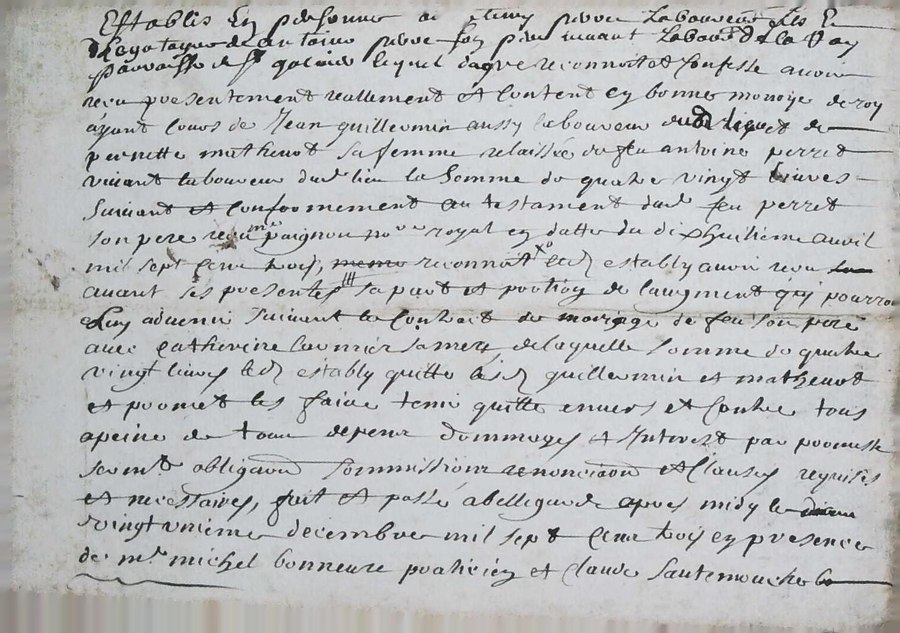 Establis En personne
de antoine perret son pere vivant Laboureur de la Vay
parroisse de St lequel de gré reconnoit et Confesse avoir
receu presentement reallement et Content en bonne monoye de roy
ayant Cours de Jean guillermin aussy laboureur dud et de
pernette mathenot sa femme relaissée de feu antoine perret
vivant laboureur dud lieu la Somme de quatre vingt livres
Suivant et Conformement au testament dud feu perret
son pere receu me paignon nore royal en datte du dixhuitieme avril
mil sept Cent trois, reconnoit led estably avoir receu
avant les presentes sa part et portion de l'augment qui pourroit
Luy advenir Suivant le Contrait de mariage de feu son pere
avec Catherine sa mere de laquelle somme de quatre
vingt livres led estably quitte lesd guillermin et mathenot
et promet les faire tenir quitte envers et Contre tous
a peine de tous depens dommages et Interest par promesse
sermt obligaon Sommissions renonciaon et Clauses requises
et necessaires, fait et passé a bellegarde apres midy le
vingt unieme decembre mil sept Cent trois en presence
de mre michel bonneure praticien et Claude Sautemouche